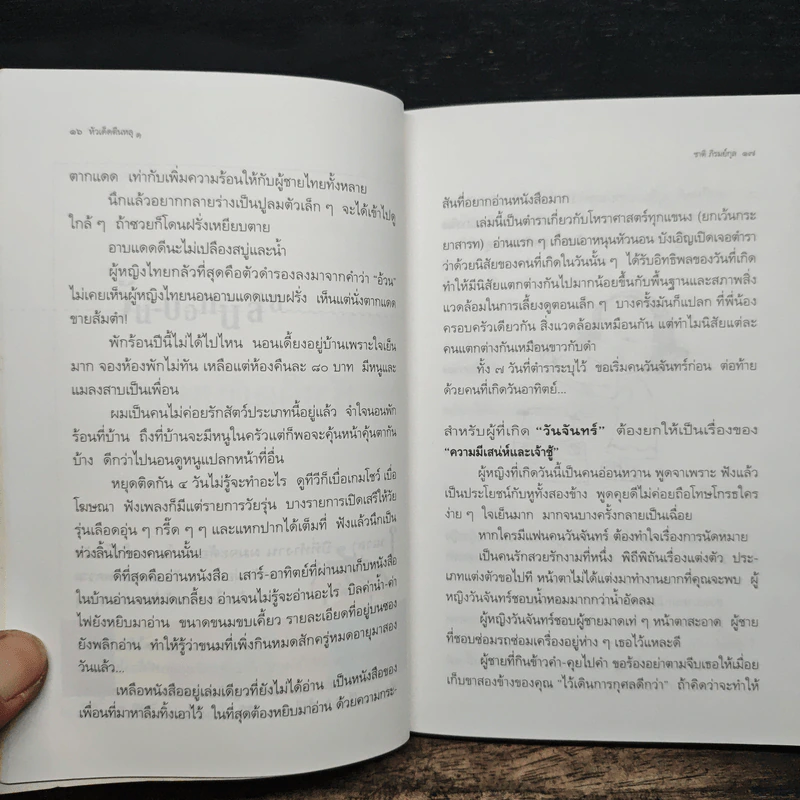 ๑๖ หัวเด็ดตีนหลุด
ตากแดด เท่ากับเพิ่มความร้อนให้กับผู้ชายไทยทั้งหลาย
นึกแล้วอยากกลายร่างเป็นปูลมตัวเล็ก ๆ จะได้เข้าไปดู
ใกล้ ๆ ถ้าซวยก็โดนฝรั่งเหยียบตาย
อาบแดดดีนะไม่เปลืองสบู่และน้ำ
ผู้หญิงไทยกลัวที่สุดคือตัวดำรองลงมาจากคำว่า “อ้วน”
ไม่เคยเห็นผู้หญิงไทยนอนอาบแดดแบบฝรั่ง เห็นแต่นั่งตากแดด
ขายส้มตำ!
พักร้อนปีนี้ไม่ได้ไปไหน นอนเดี้ยงอยู่บ้านเพราะใจเย็น
มาก จองห้องพักไม่ทัน เหลือแต่ห้องคืนละ ๘๐ บาท มีหนูและ
แมลงสาบเป็นเพื่อน
ผมเป็นคนไม่ค่อยรักสัตว์ประเภทนี้อยู่แล้ว จำใจนอนพัก
ร้อนที่บ้าน ถึงที่บ้านจะมีหนูในครัวแต่ก็พอจะคุ้นหน้าคุ้นตากัน
บ้าง ดีกว่าไปนอนดูหนูแปลกหน้าที่อื่น
หยุดติดกัน ๔ วันไม่รู้จะทำอะไร ดูทีวีก็เบื่อเกมโชว์ เบื่อ
โฆษณา ฟังเพลงก็มีแต่รายการวัยรุ่น บางรายการเปิดเสรีให้วัย
รุ่นเลือดอุ่น ๆ กรี๊ด ๆ ๆ และแหกปากได้เต็มที่ ฟังแล้วนึกเป็น
ห่วงลิ้นไก่ของคนคนนั้น!
ดีที่สุดคืออ่านหนังสือ เสาร์-อาทิตย์ที่ผ่านมาเก็บหนังสือ
ในบ้านอ่านจนหมดเกลี้ยง อ่านจนไม่รู้จะอ่านอะไร บิลค่าน้ำ-ค่า
ไฟยังหยิบมาอ่าน ขนาดขนมขบเคี้ยว รายละเอียดที่อยู่บนซอง
ยังพลิกอ่าน ทำให้รู้ว่าขนมที่เพิ่งกินหมดสักครู่หมดอายุมาสอง
วันแล้ว...
เหลือหนังสืออยู่เล่มเดียวที่ยังไม่ได้อ่าน เป็นหนังสือของ
เพื่อนที่มาหาลืมทิ้งเอาไว้ ในที่สุดต้องหยิบมาอ่าน ด้วยความกระ-
ชาติ ภิรมย์กุล ๑๗
สันที่อยากอ่านหนังสือมาก
เล่มนี้เป็นตำราเกี่ยวกับโหราศาสตร์ทุกแขนง (ยกเว้นกระ
ยาสารท) อ่านแรก ๆ เกือบเอาหนุนหัวนอน บังเอิญเปิดเจอตำรา
ว่าด้วยนิสัยของคนที่เกิดในวันนั้น ๆ ได้รับอิทธิพลของวันที่เกิด
ทำให้มีนิสัยแตกต่างกันไปมากน้อยขึ้นกับพื้นฐานและสภาพสิ่ง
แวดล้อมในการเลี้ยงดูตอนเล็ก ๆ บางครั้งมันก็แปลก ที่พี่น้อง
ครอบครัวเดียวกัน สิ่งแวดล้อมเหมือนกัน แต่ทำไมนิสัยแต่ละ
คนแตกต่างกันเหมือนขาวกับดำ
ทั้ง ๗ วันที่ตำราระบุไว้ ขอเริ่มคนวันจันทร์ก่อน ต่อท้าย
ด้วยคนที่เกิดวันอาทิตย์...
สำหรับผู้ที่เกิด “วันจันทร์” ต้องยกให้เป็นเรื่องของ
“ความมีเสน่ห์และเจ้าชู้”
ผู้หญิงที่เกิดวันนี้เป็นคนอ่อนหวาน พูดจาเพราะ ฟังแล้ว
เป็นประโยชน์กับหูทั้งสองข้าง พูดคุยดีไม่ค่อยถือโทษโกรธใคร
ง่าย ๆ ใจเย็นมาก มากจนบางครั้งกลายเป็นเฉื่อย
หากใครมีแฟนคนวันจันทร์ ต้องทำใจเรื่องการนัดหมาย
เป็นคนรักสวยรักงามที่หนึ่ง พิถีพิถันเรื่องแต่งตัว ประ-
เภทแต่งตัวขอไปที หน้าตาไม่ได้แต่งมาทำงานยากที่คุณจะพบ ผู้
หญิงวันจันทร์ชอบน้ำหอมมากกว่าน้ำอัดลม
ผู้หญิงวันจันทร์ชอบผู้ชายมาดเท่ ๆ หน้าตาสะอาด ผู้ชาย
ที่ชอบซ่อมรถซ่อมเครื่องอยู่ห่าง ๆ เธอไว้แหละดี
ผู้ชายที่กินข้าวคำ-คุยไปคำ ขอร้องอย่าตามจีบเธอให้เมื่อย
เก็บขาสองข้างของคุณ “ไว้เดินการกุศลดีกว่า” ถ้าคิดว่าจะทำให้